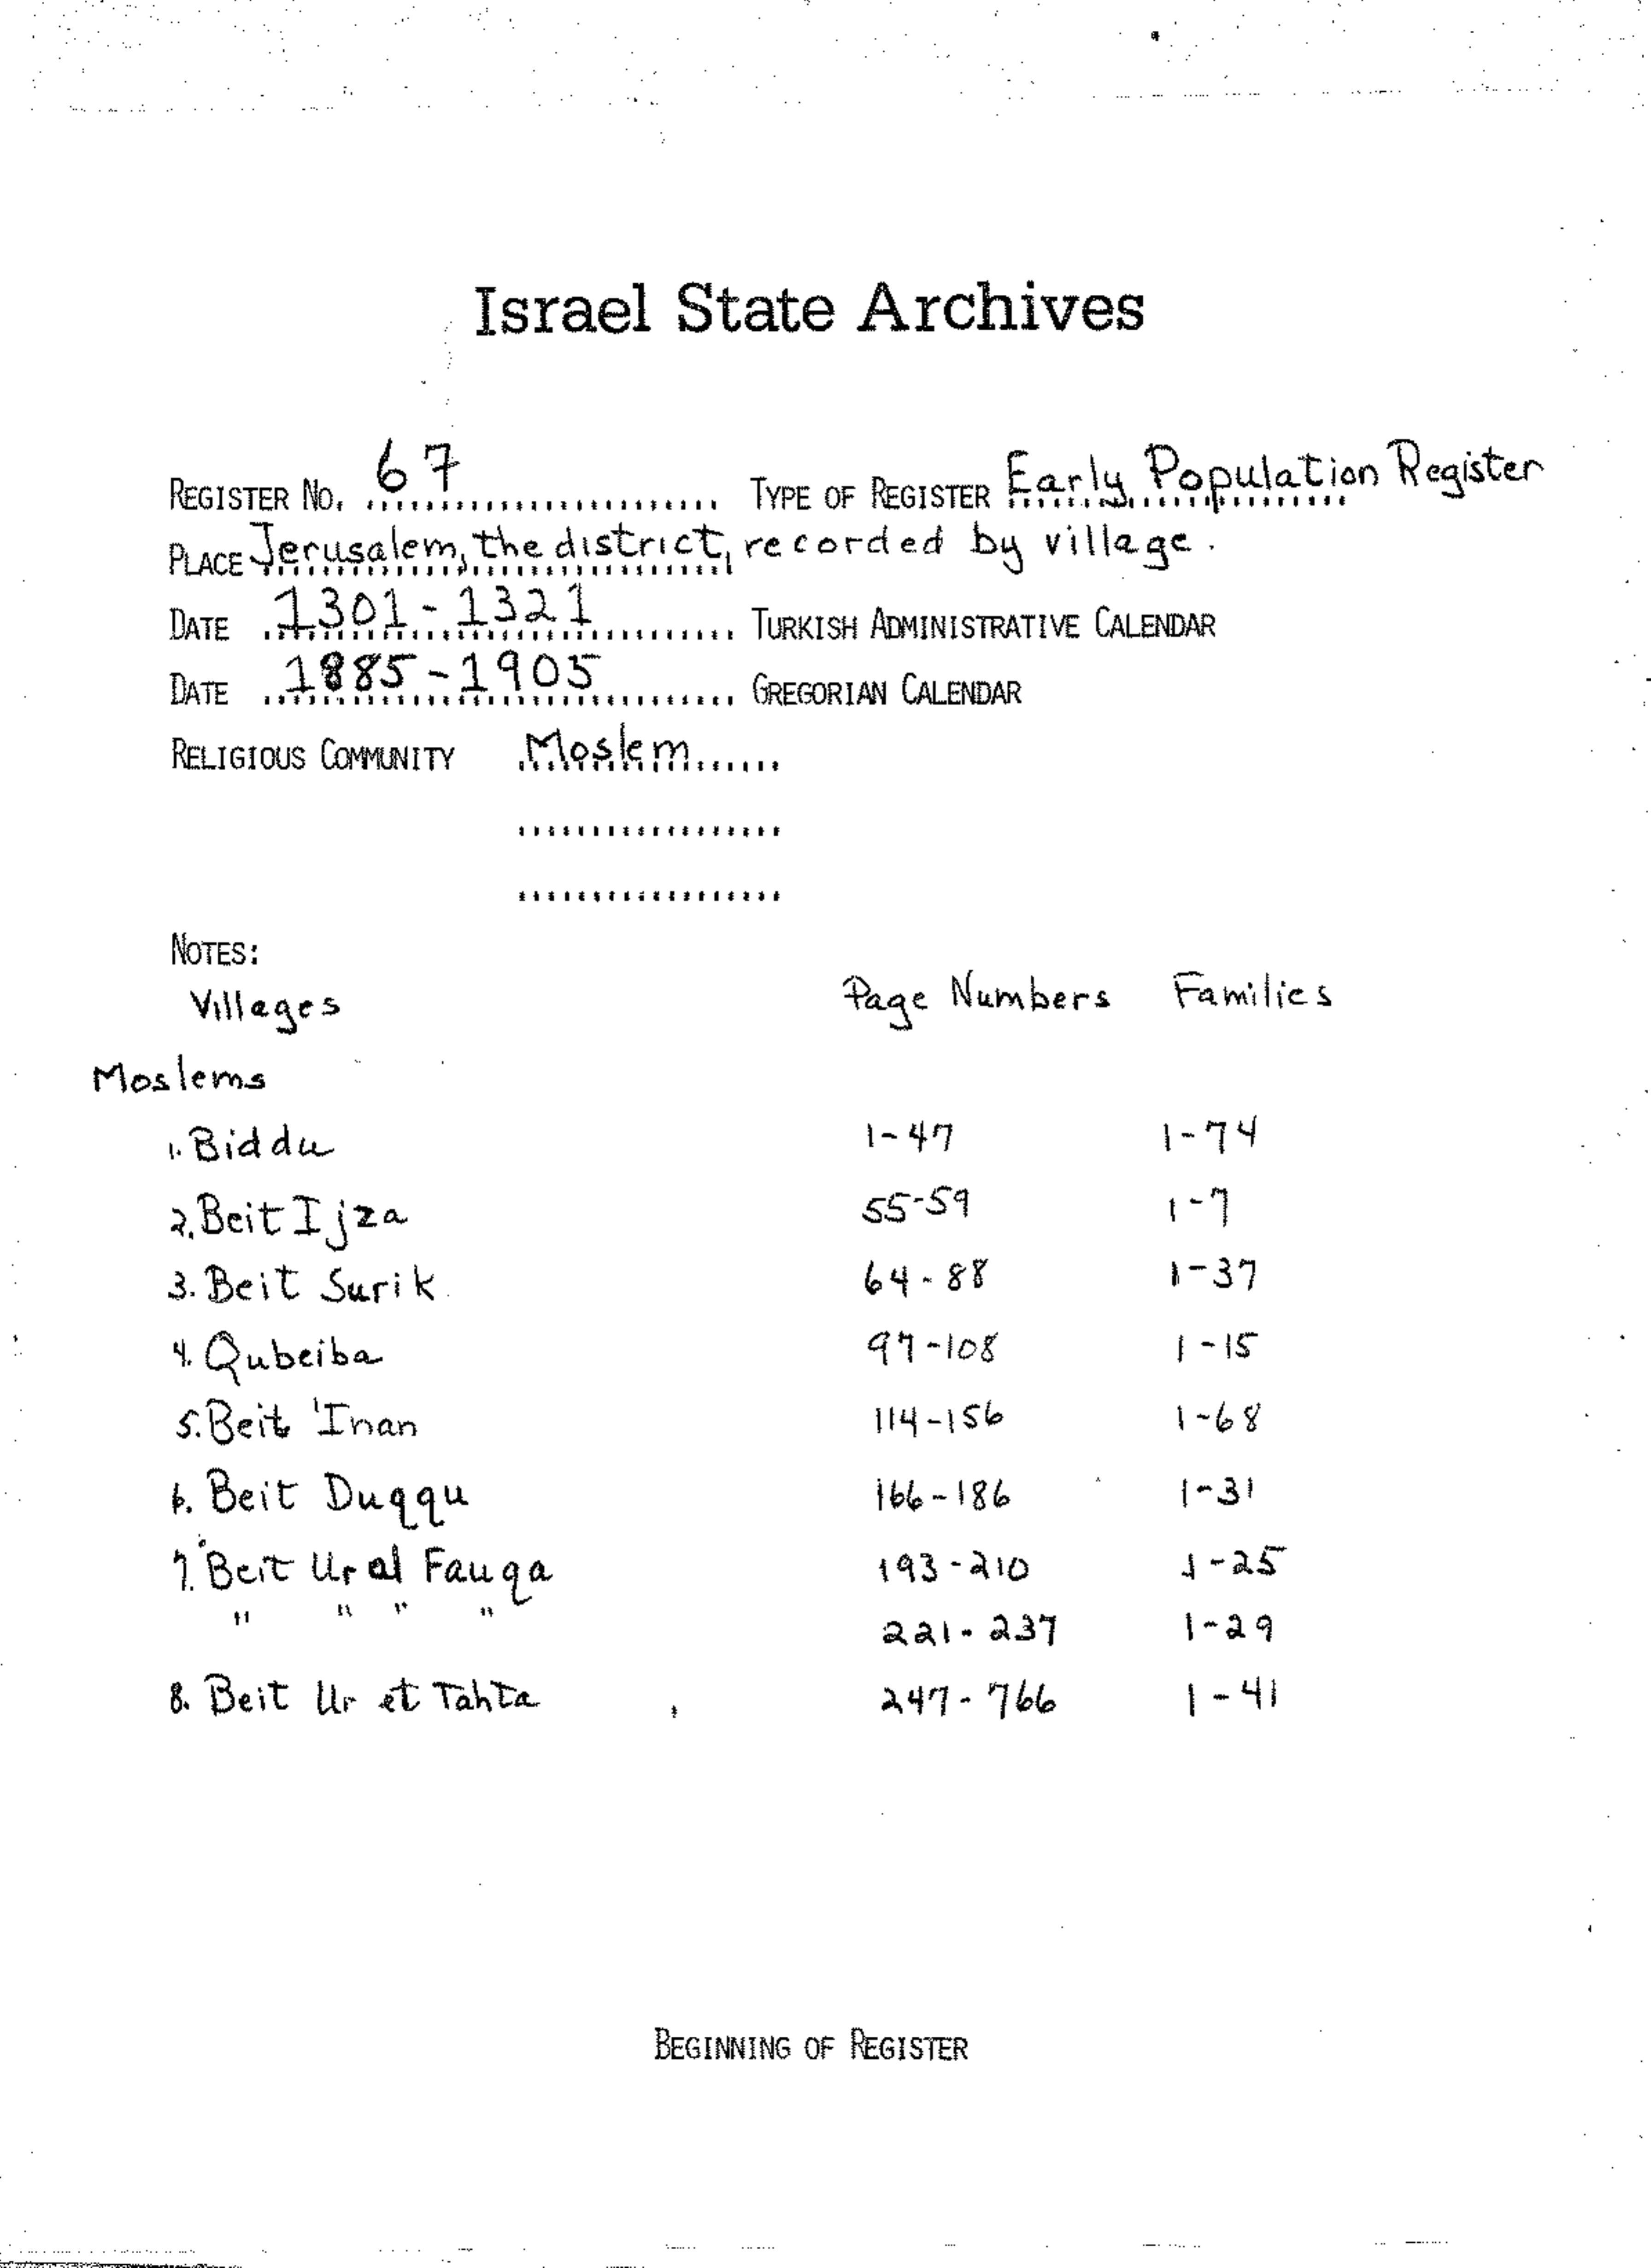 Israel State Archives
REGISTER NO. 67 TYPE OF REGISTER Early Population Register
PLACE Jerusalem, the district, recorded by village.
DATE 1301-1321 TURKISH ADMINISTRATIVE CALENDAR
DATE 1885-1905 GREGORIAN CALENDAR
RELIGIOUS COMMUNITY Moslem
NOTES:
Villages Page Numbers Families
Moslems
1. Biddu 1-47 1-74
2. Beit Ijza 55-59 1-7
3. Beit Surik 64-88 1-37
4. Qubeiba 97-108 1-15
5. Beit 'Inan 114-156 1-68
6. Beit Duqqu 166-186 1-31
7. Beit Ur al Fauqa 193-210 1-25
" " " " 221-237 1-29
8. Beit Ur et Tahta 247-766 1-41
BEGINNING OF REGISTER